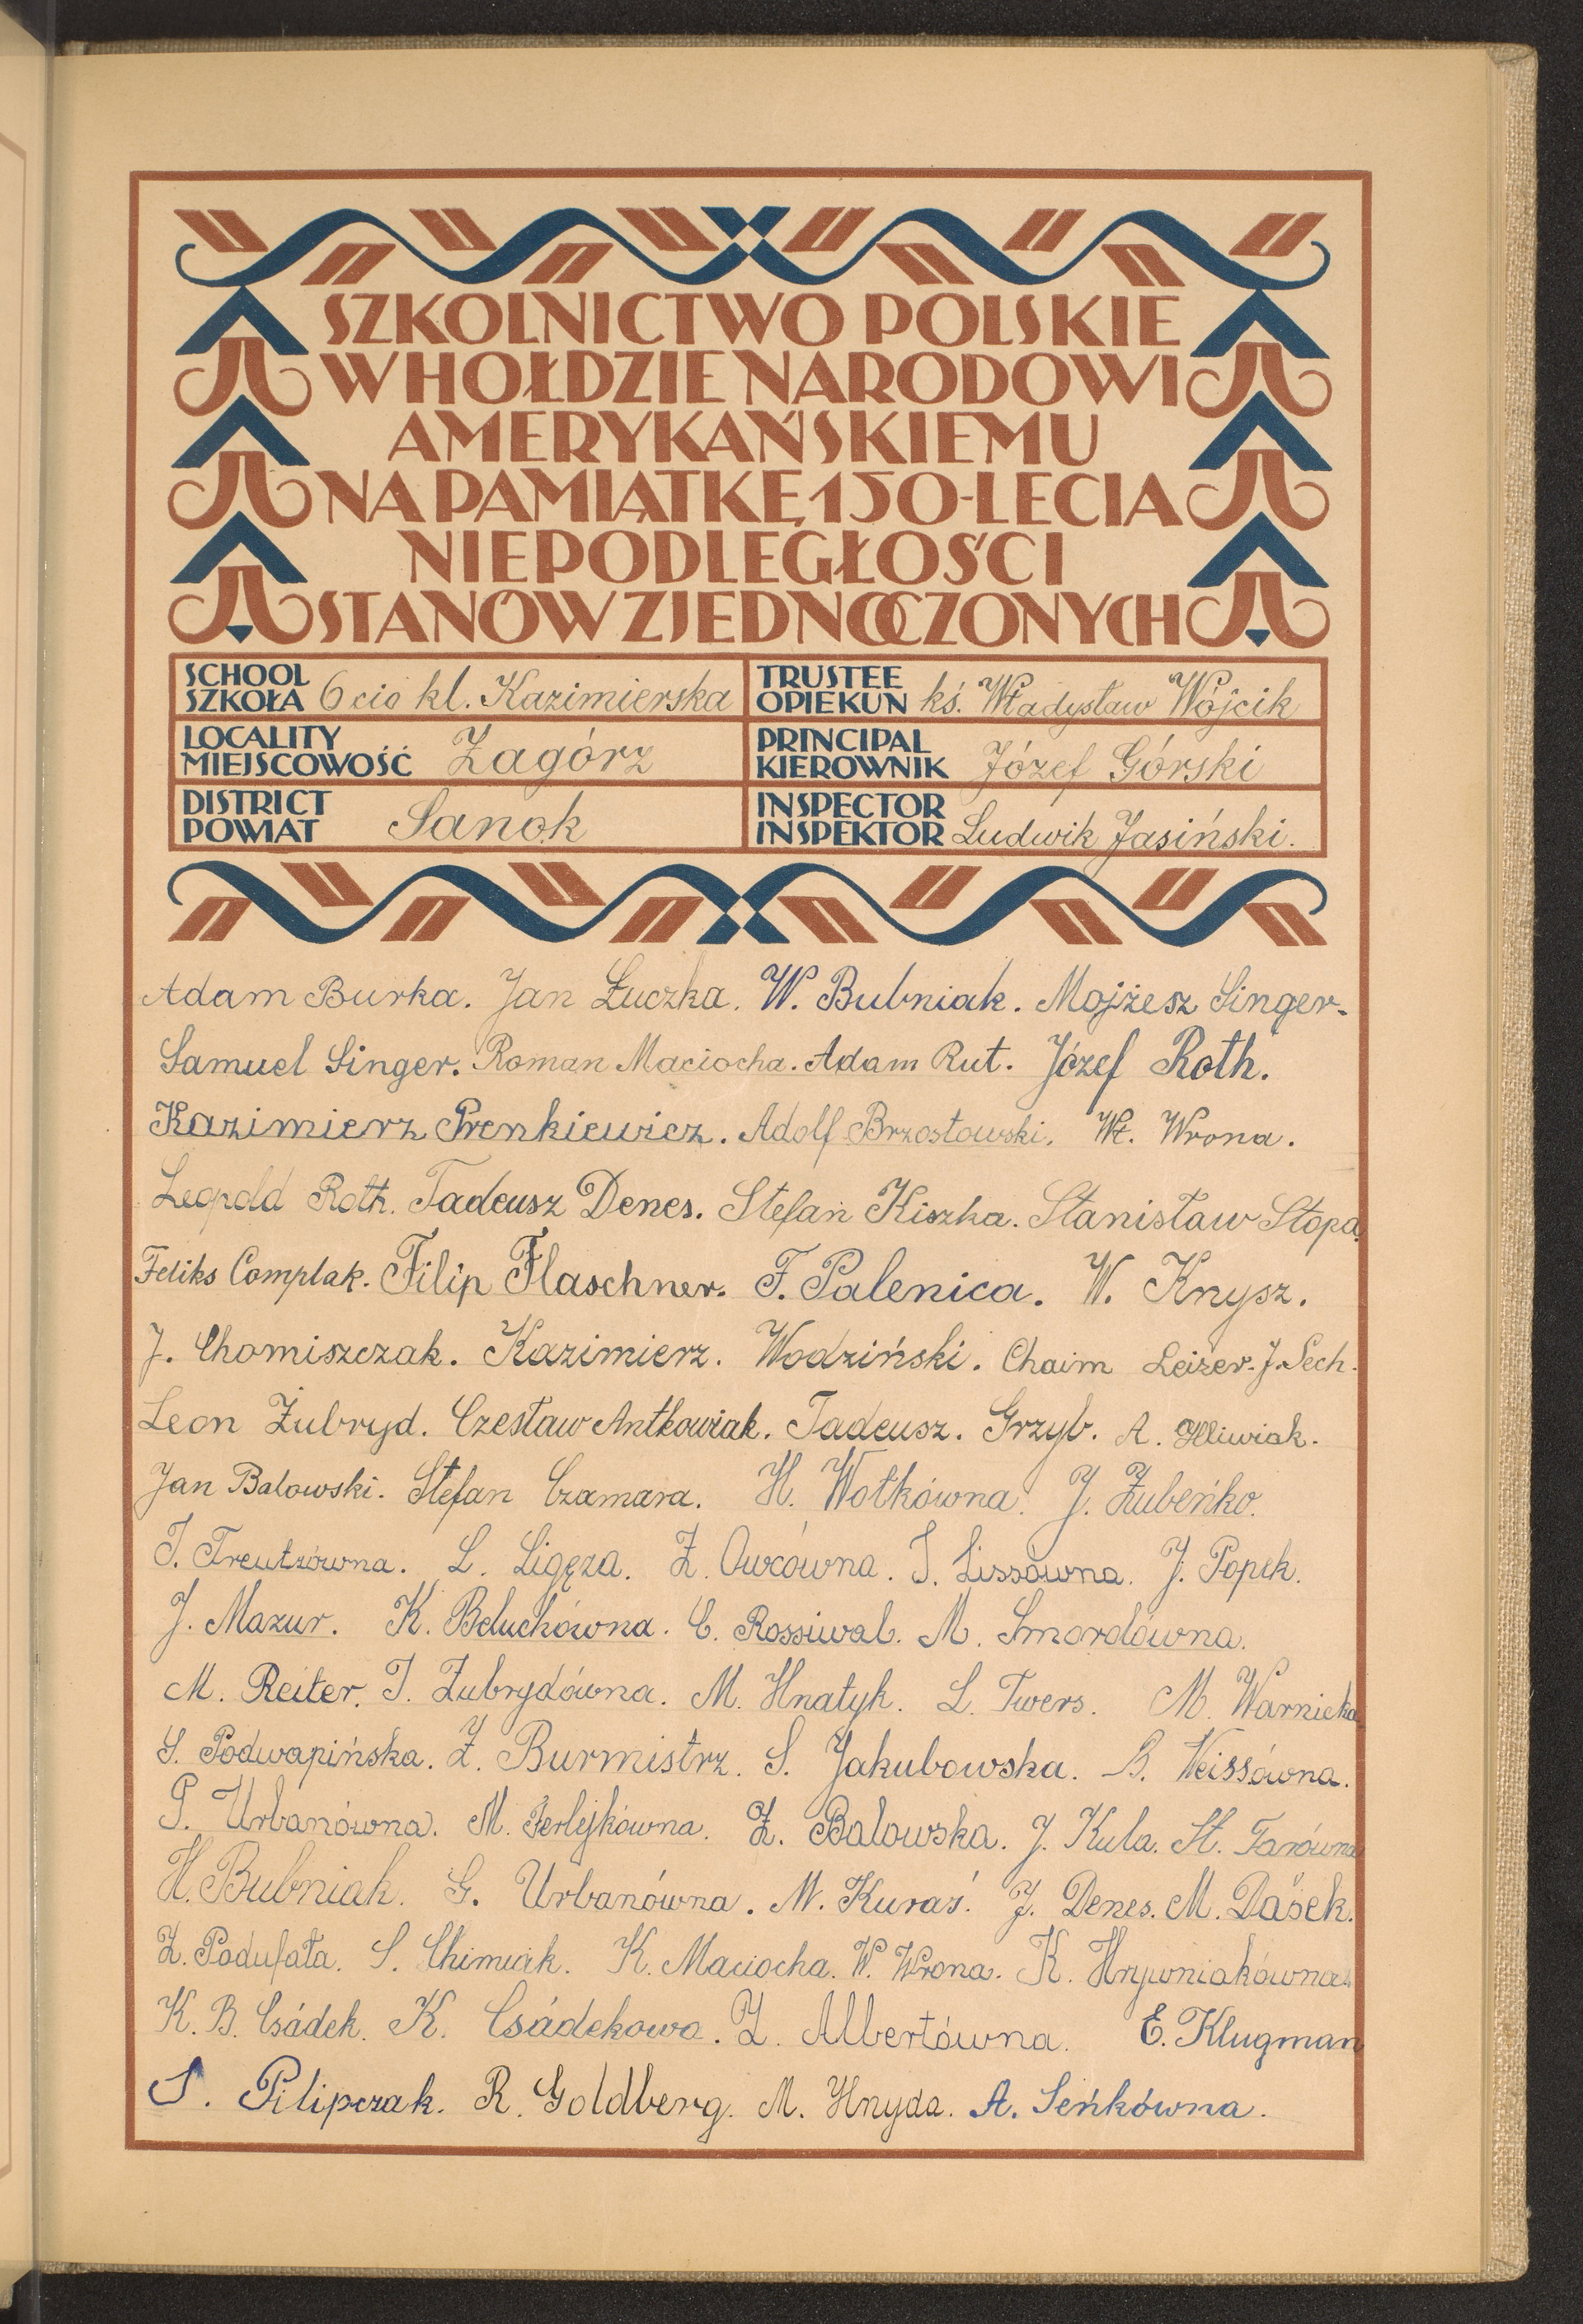 SZKOLNICTWO POLSKIE
W HOŁDZIE NARODOWI
AMERYKAŃSKIEMU
NA PAMIĄTKĘ 150-LECIA
NIEPODLEGŁOŚCI
STANÓW ZJEDNOCZONYCH
SCHOOL
SZKOŁA 6 cio kl. Kazimierska
TRUSTEE
OPIEKUN kś. Władysław Wójcik
LOCALITY
MIEJSCOWOŚĆ Zagórz
PRINCIPAL
KIEROWNIK Józef Górski
DISTRICT
POWIAT Sanok
INSPECTOR
INSPEKTOR Ludwik Jasiński.
Adam Burka. Jan Łuczka. W. Bubniak. Mojżesz Singer.
Samuel Singer. Roman Maciocha. Adam Rut. Józef Roth.
Kazimierz Prenkiewicz. Adolf Brzostowski. Wł. Wrona.
Leopold Roth. Tadeusz Denes. Stefan Kiszka. Stanisław Stopa.
Feliks Complak. Filip Flaschner. F. Palenica. W. Knysz.
J. Chomiszczak. Kazimierz. Wodziński. Chaim Leizer. J. Sech.
Leon Żubryd. Czesław Antkowiak. Tadeusz. Grzyb. A. Hliwiak.
Jan Balowski. Stefan Czamara. H. Wołkówna. J. Zubeńko.
I. Treutzówna. L. Ligęza. Z. Owcówna. I. Lissówna. J. Popek.
J. Mazur. K. Beluchówna. C. Rossiwal. M. Smordówna.
M. Reiter. I. Zubrydówna. M. Hnatyk. L. Twers. M. Warnicka
S. Podwapińska. Z. Burmistrz. S. Jakubowska. B. Weissówna.
P. Urbanówna. M. Ferlejkówna. Z. Balowska. J. Kula. St. Tarówna
H. Bubniak. G. Urbanówna. M. Kuraś. J. Denes. M. Dasek.
Z. Podufała. S. Chimiak. K. Maciocha. W. Wrona. K. Hrywniakówna.
K. B. Csádek. K. Csádekowa. Z. Albertówna. E. Klugman
S. Pilipczak. R. Goldberg. M. Hnyda. A. Seńkówna.